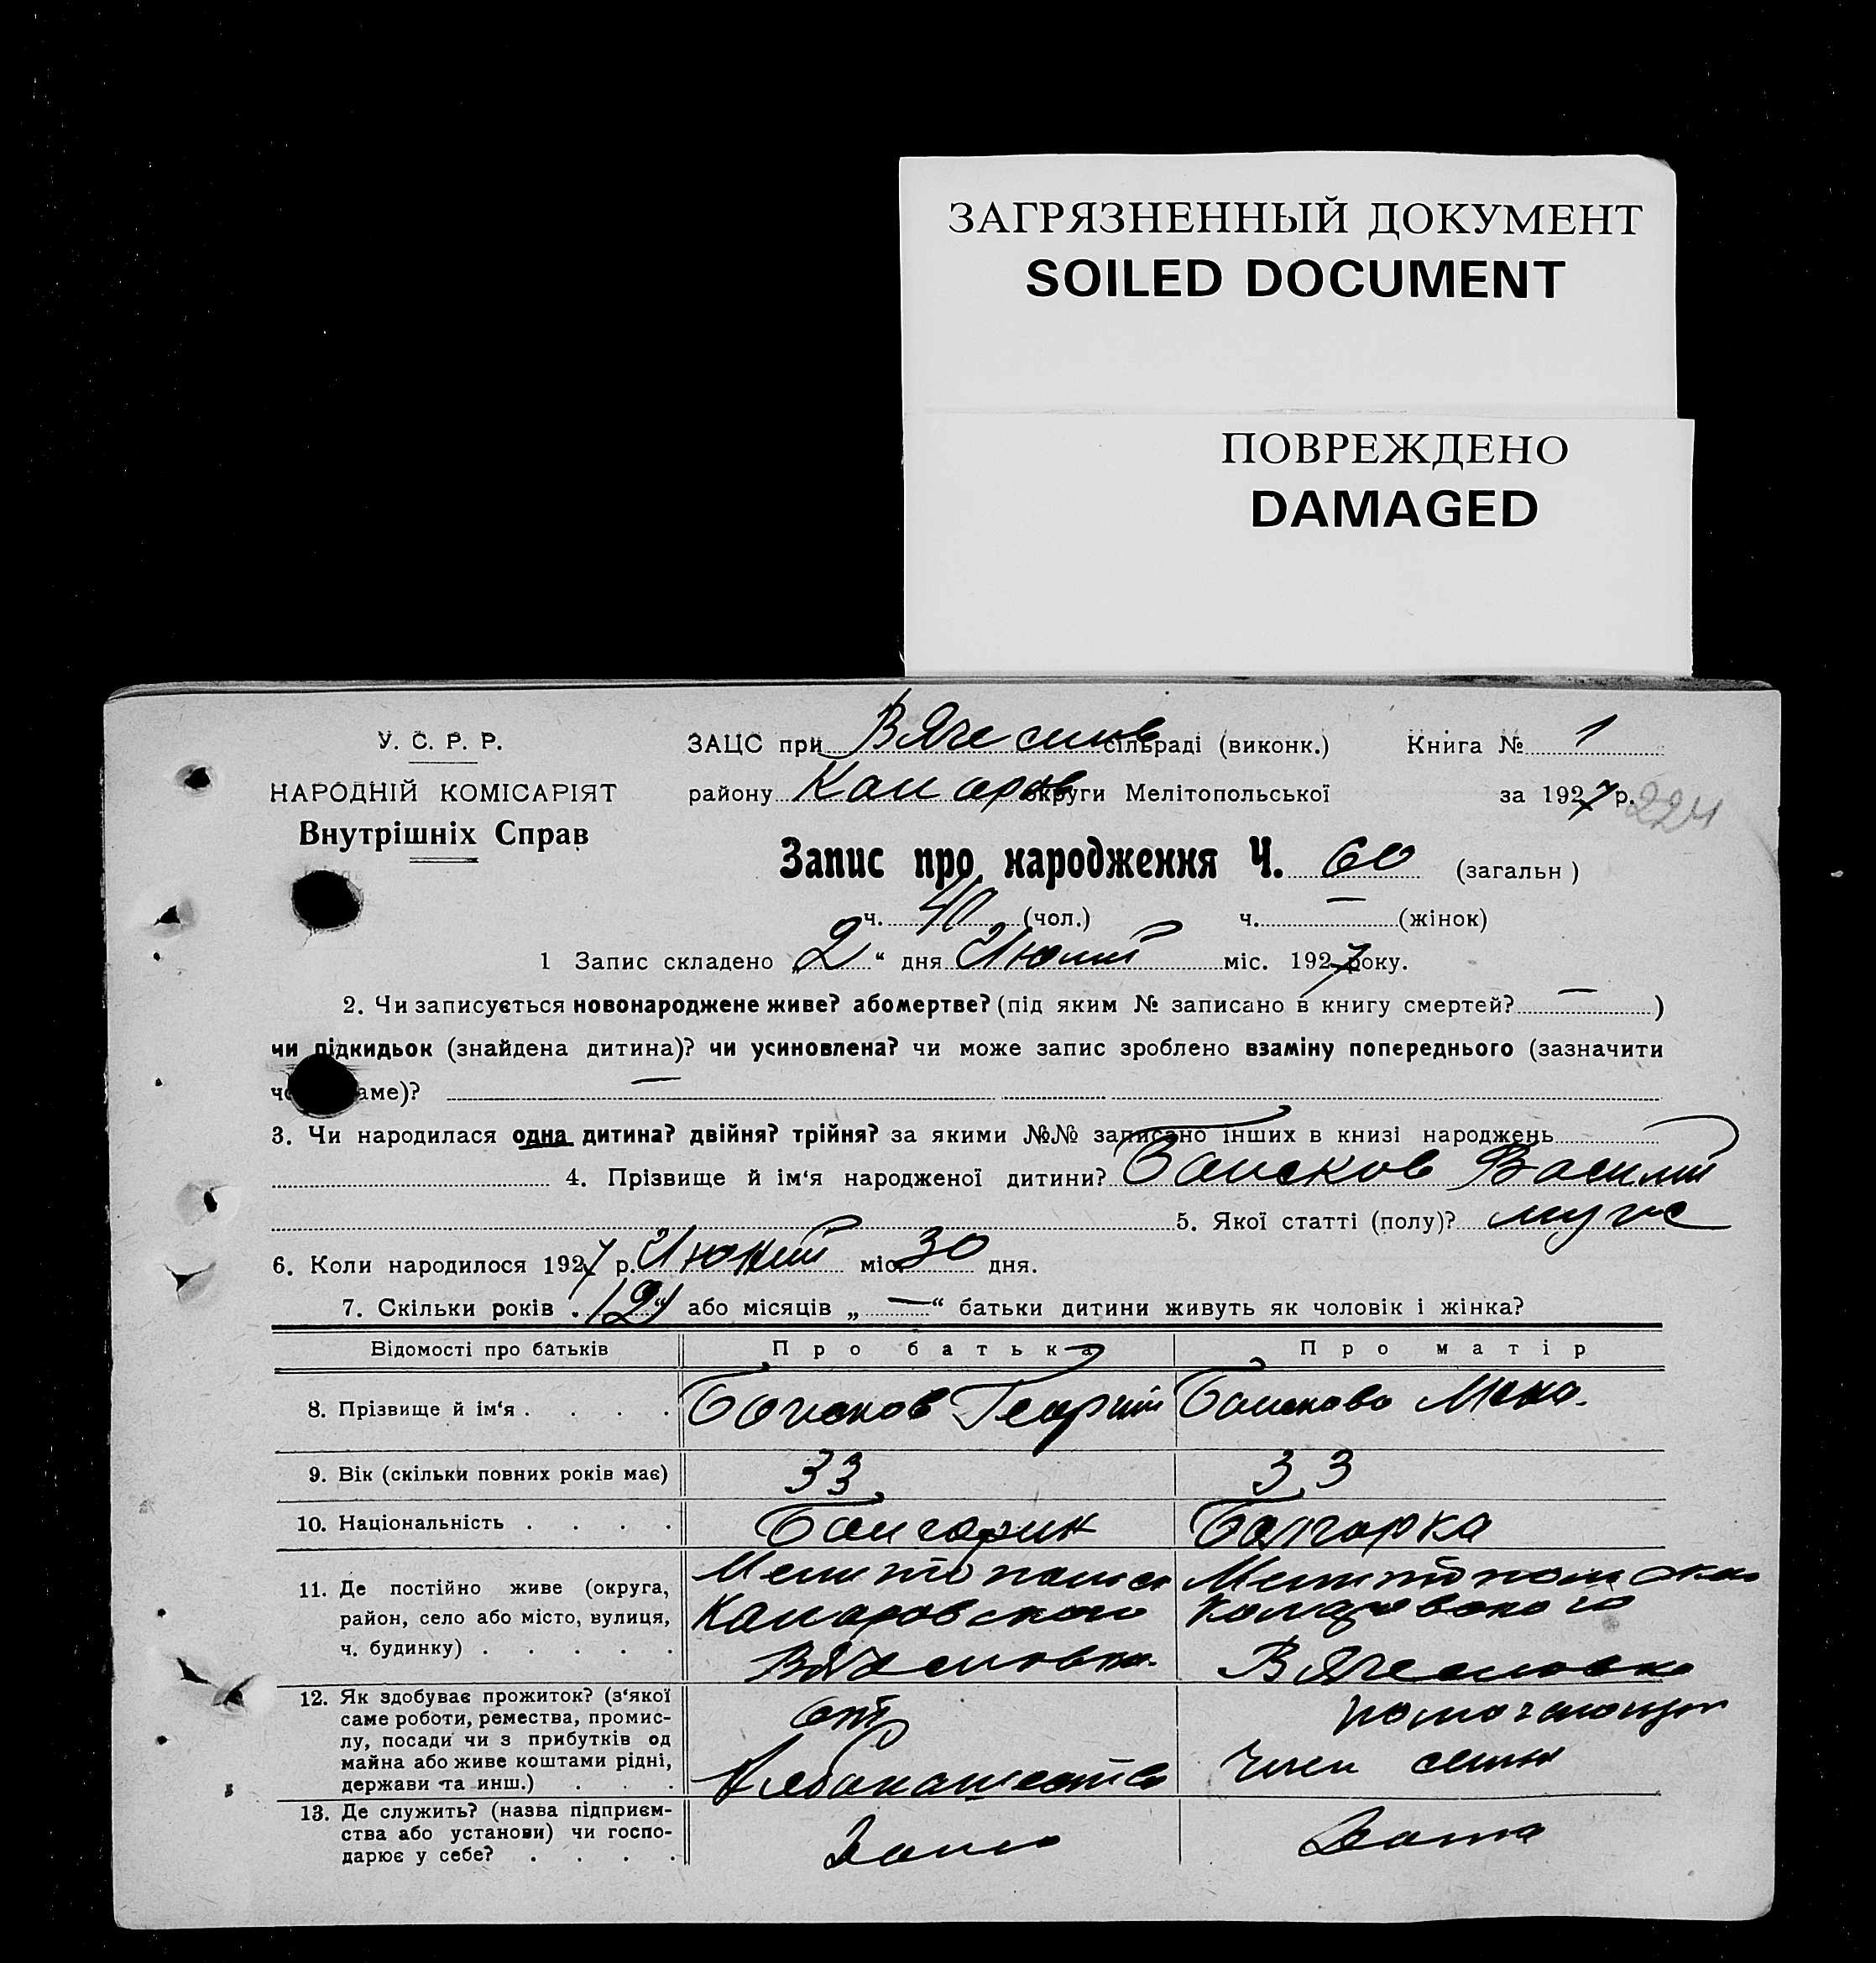 ЗАГРЯЗНЕННЫЙ ДОКУМЕНТ
SOILED DOCUMENT
ПОВРЕЖДЕНО
DAMAGED
У. С. Р. Р.
НАРОДНІЙ КОМІСАРІЯТ
Внутрішніх Справ
ЗАЦС при Вячеслов сільраді (виконк.) Книга № 1
району Коларов округи Мелітопольської за 1927 р. 224
Запис про народження Ч. 60 (загальн )
ч. 40 (чол.) ч. — (жінок)
1 Запис складено „2“ дня Июлий міс. 1927 року.
2. Чи записується новонароджене живе? або мертве? (під яким № записано в книгу смертей? — )
чи підкидьок (знайдена дитина)? чи усиновлена? чи може запис зроблено взаміну попереднього (зазначити
аме)? —
3. Чи народилася одна дитина? двійня? трійня? за якими №№ записано інших в книзі народжень
4. Прізвище й ім‘я народженої дитини? Василий
5. Якої статті (полу)? муж
6. Коли народилося 1927 р. міс. 30 дня.
7. Скільки років „12“ або місяців „—“ батьки дитини живуть як чоловік і жінка?
Відомості про батьків Про батька Про матір
8. Прізвище й ім‘я . . . . Георгий
9. Вік (скільки повних років має) 33 33
10. Національність . . . . Болгарин Болгарка
11. Де постійно живе (округа, Мелитопольск Мелитопольская
район, село або місто, вулиця, Коларовского Коларовского
ч. будинку) . . . . . Вячеловка Вячесловка
12. Як здобуває прожиток? (з‘якої
саме роботи, ремества, промис- от помогающий
лу, посади чи з прибутків од
майна або живе коштами рідні, Хлебопашества член семьи
держави та инш.) . . .
13. Де служить? (назва підприєм-
ства або установи) чи госпо- Дома Дома
дарює у себе? . . . .